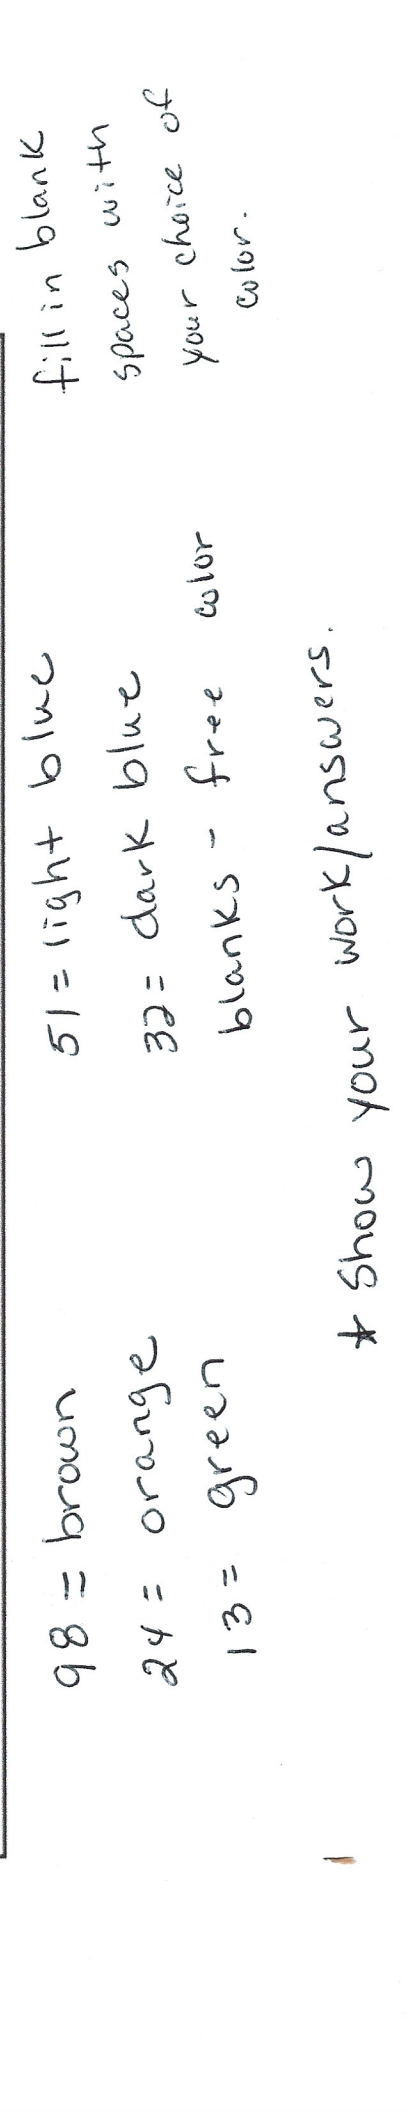 98 = brown
24 = orange
13 = green
51 = light blue
32 = dark blue
blanks - free color
fill in blank
spaces with
your choice of
color.
* Show your work/answers.